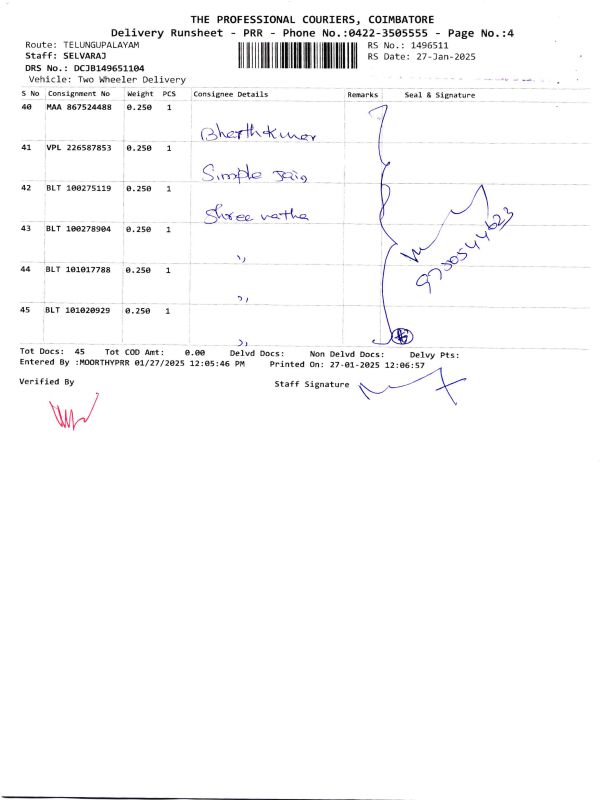 THE PROFESSIONAL COURIERS, COIMBATORE
Delivery Runsheet - PRR - Phone No.:0422-3505555 - Page No.:4
Route: TELUNGUPALAYAM RS No.: 1496511
Staff: SELVARAJ RS Date: 27-Jan-2025
DRS No.: DCJB149651104
Vehicle: Two Wheeler Delivery
S No Consignment No Weight PCS Consignee Details Remarks Seal & Signature
40 MAA 867524488 0.250 1
Bharthkumar
41 VPL 226587853 0.250 1
Simple Jain
42 BLT 100275119 0.250 1
Shree natha
43 BLT 100278904 0.250 1
"
44 BLT 101017788 0.250 1
"
45 BLT 101020929 0.250 1
"
Tot Docs: 45 Tot COD Amt: 0.00 Delvd Docs: Non Delvd Docs: Delvy Pts:
Entered By :MOORTHYPRR 01/27/2025 12:05:46 PM Printed On: 27-01-2025 12:06:57
Verified By Staff Signature